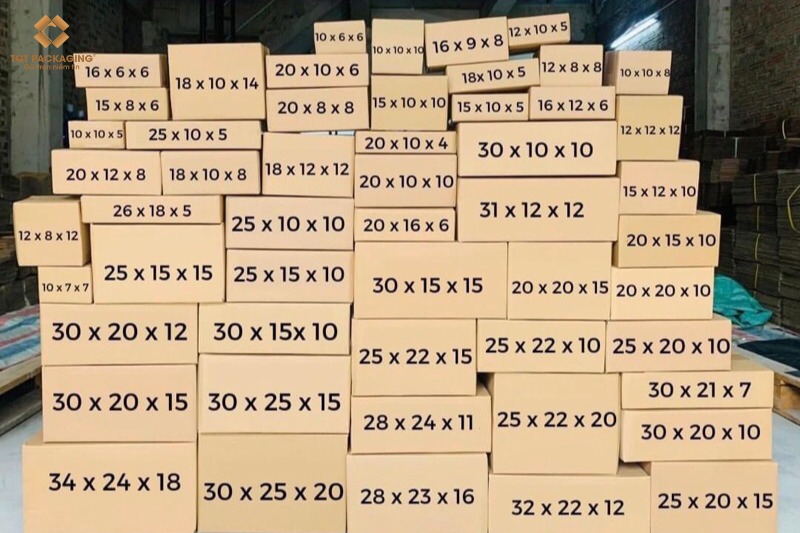 TGT PACKAGING
10 x 6 x 6
10 x 10 x 10
16 x 9 x 8
12 x 10 x 5
16 x 6 x 6
18 x 10 x 14
20 x 10 x 6
18x 10 x 5
12 x 8 x 8
10 x 10 x 8
15 x 8 x 6
20 x 8 x 8
15 x 10 x 10
15 x 10 x 5
16 x 12 x 6
10 x 10 x 5
25 x 10 x 5
20 x 10 x 4
30 x 10 x 10
12 x 12 x 12
20 x 12 x 8
18 x 10 x 8
18 x 12 x 12
20 x 10 x 10
15 x 12 x 10
12 x 8 x 12
26 x 18 x 5
25 x 10 x 10
20 x 16 x 6
31 x 12 x 12
20 x 15 x 10
10 x 7 x 7
25 x 15 x 15
25 x 15 x 10
30 x 15 x 15
20 x 20 x 15
20 x 20 x 10
30 x 20 x 12
30 x 15x 10
25 x 22 x 15
25 x 22 x 10
25 x 20 x 10
30 x 20 x 15
30 x 25 x 15
28 x 24 x 11
25 x 22 x 20
30 x 21 x 7
30 x 20 x 10
34 x 24 x 18
30 x 25 x 20
28 x 23 x 16
32 x 22 x 12
25 x 20 x 15